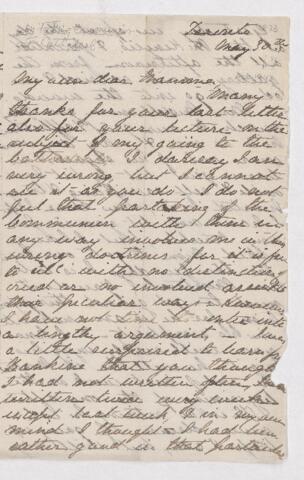 Toronto
May 30th
My own dear Mamma,
Many
thanks for your last letter
also for your lecture on the
subject of my going to the
I daresay I am
very wrong but I cannot
see it as you do. I do not
feel that partaking of the
Communion with them in
any way involves me in their
wrong doctrines for it is free
to all with no distinction of
creed or no involved
their peculiar ways. However
I have not time to enter into
a lengthy argument, I was
a little surprised to
that you thought
I had not written often. I have
written twice every week
except last week & in my own
mind I thought I had been
rather good in that particular